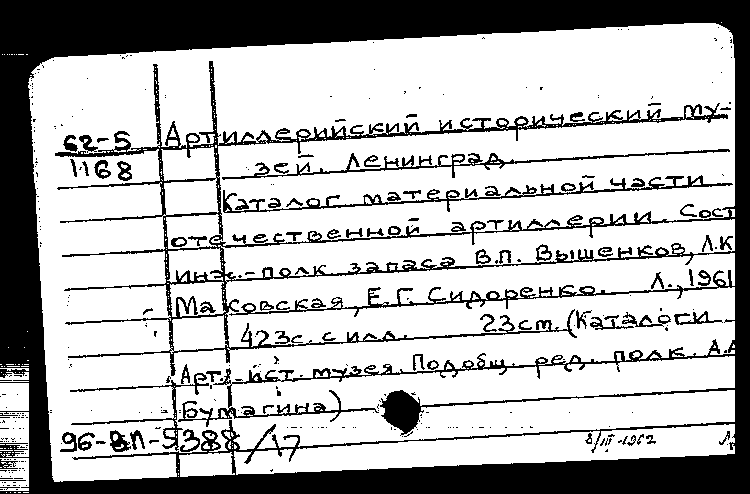 62-5 Артиллерийский исторический му-
1168 зей. Ленинград.
Каталог материальной части
отечественной артиллерии. Сост
инж.-полк запаса В.П. Вышенков, Л.К
Маковская, Е.Г. Сидоренко. Л., 1961
423с. с илл. 23ст. (Каталоги
Арт. ист. музея. Подобщ. ред. полк. А.А
Бумагина)
96-ВЛ-5388/17 8/III-1962